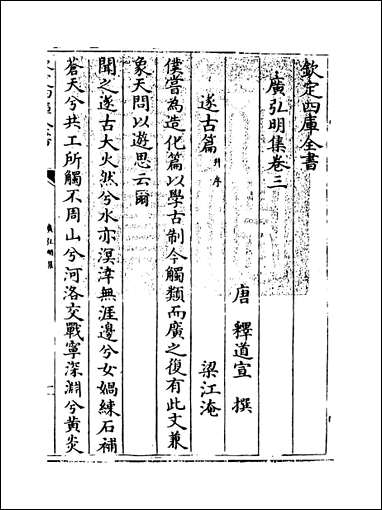 欽定四庫全書
廣弘明集卷三
唐 釋道宣 撰
遂古篇并序
梁江淹
僕嘗為造化篇以學古制今觸類而廣之復有此文兼
象天問以遊思云爾
聞之遂古大火然兮水亦溟涬無涯邊兮女媧練石補
蒼天兮共工所觸不周山兮河洛交戰寧深淵兮黃炎
廣弘明集